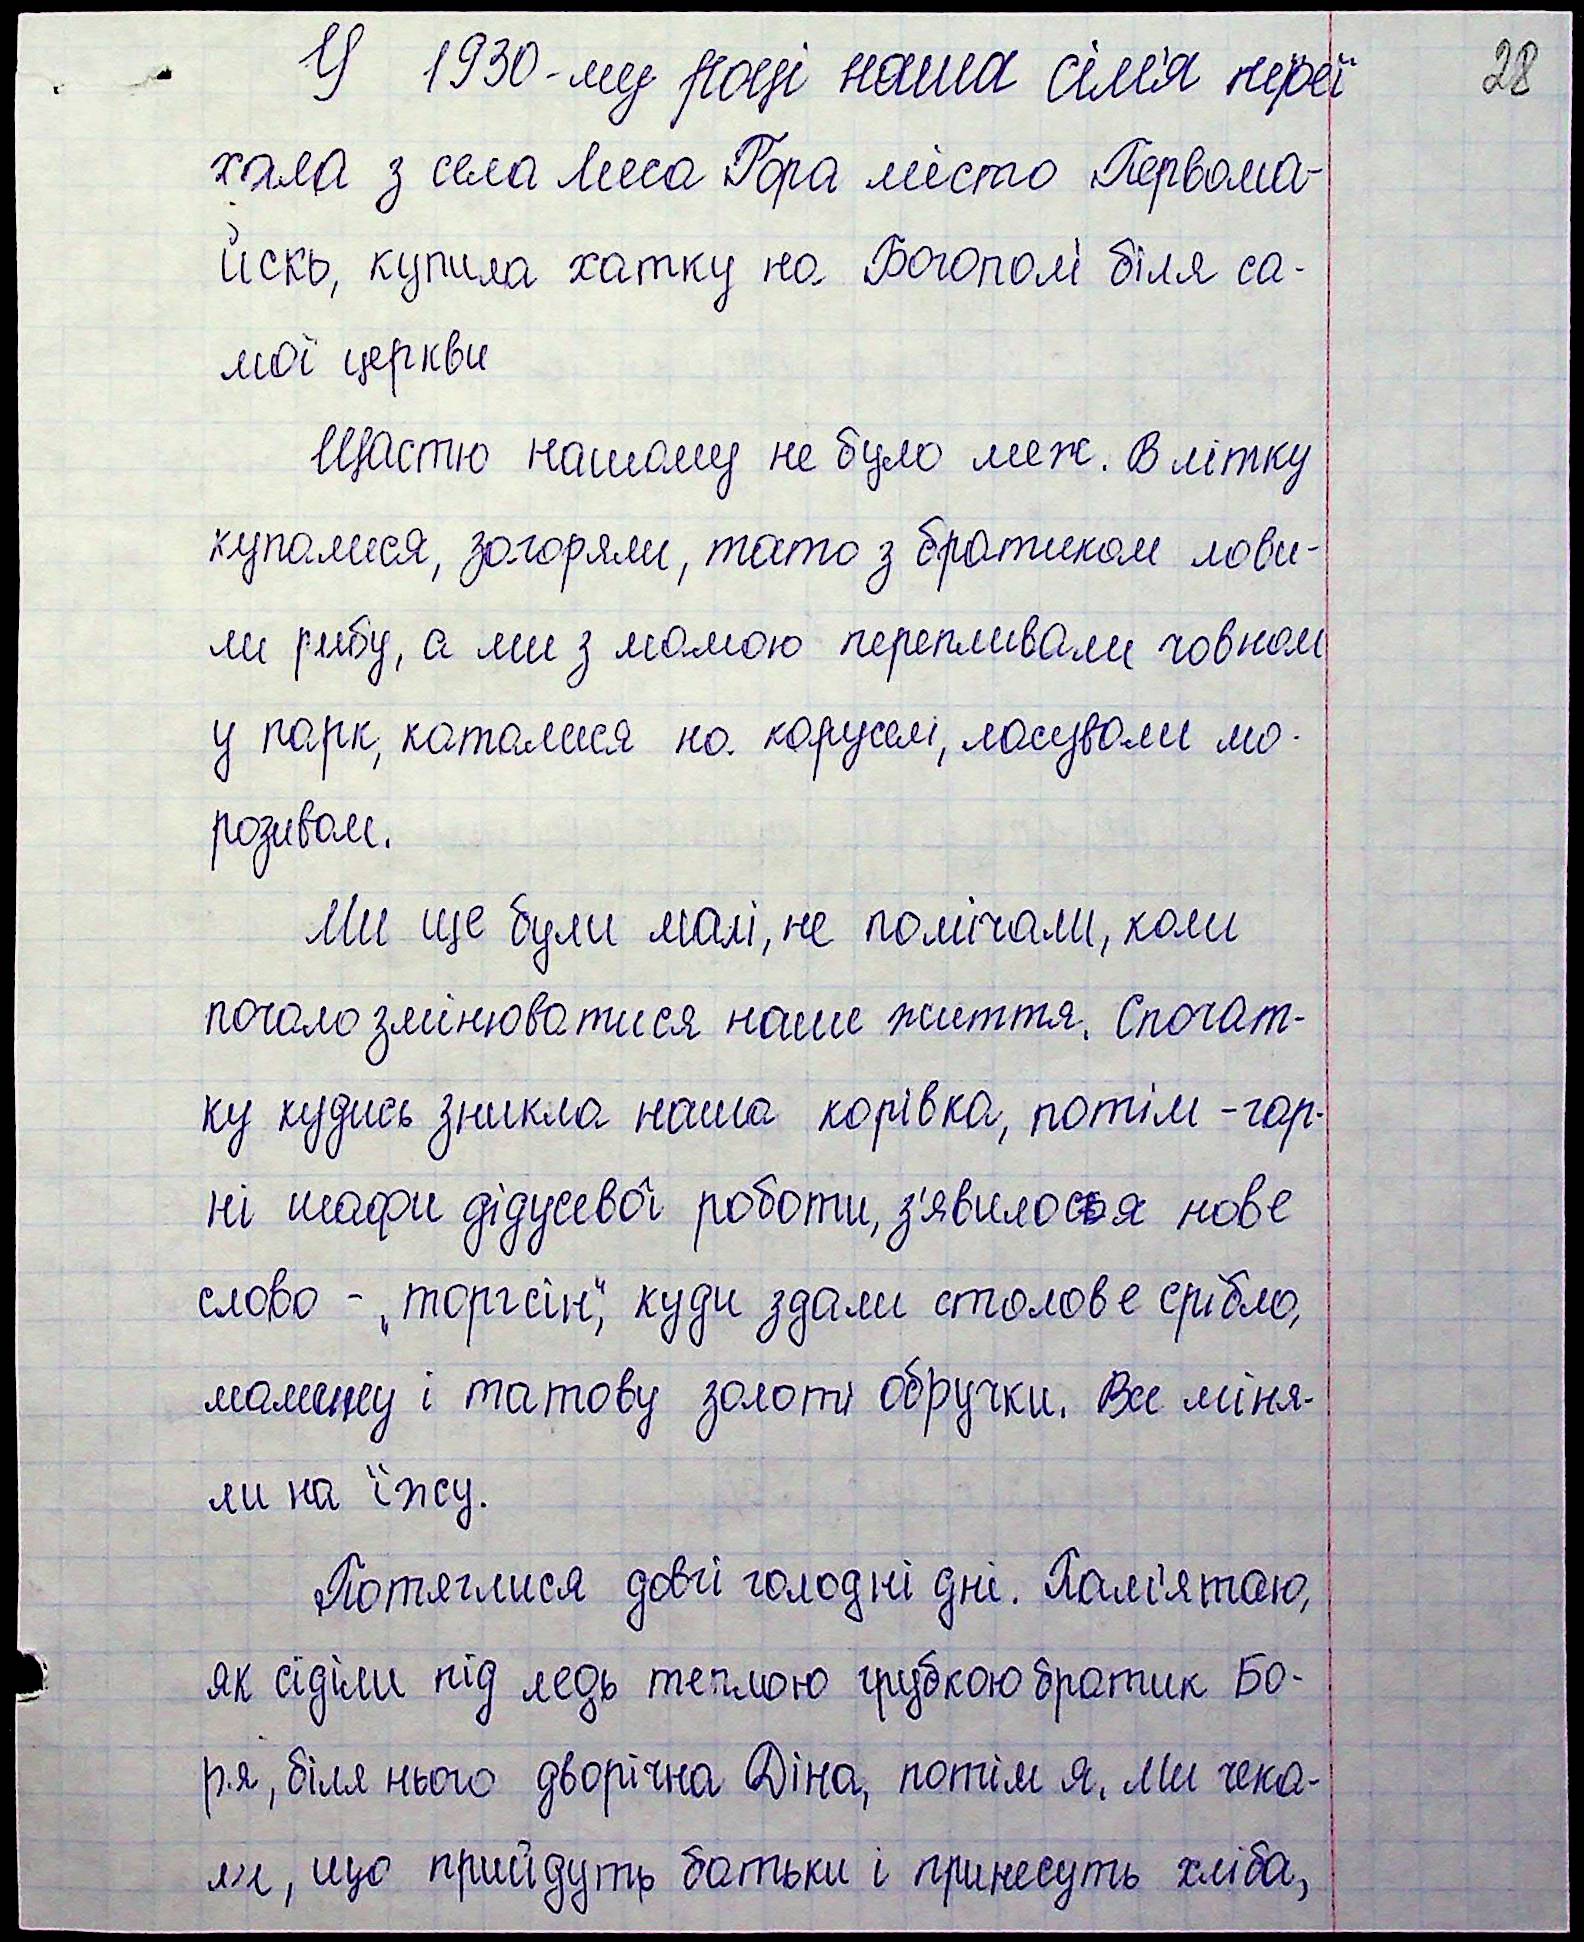 28
У 1930-му році наша сім'я переї
хала з села Лиса Гора місто Первома-
йськ, купила хатку на Богополі біля са-
мої церкви
Щастю нашому не було меж. В літку
купалися, загоряли, тато з братиком лови-
ли рибу, а ми з мамою перепливали човном
у парк, каталися на каруселі, ласували мо-
розивом.
Ми ще були малі, не помічали, коли
почало змінюватися наше життя. Спочат-
ку кудись зникла наша корівка, потім - гар-
ні шафи дідусевої роботи, з'явилося нове
слово - „торгсін", куди здали столове срібло,
мамину і татову золоті обручки. Все міня-
ли на їжу.
Потяглися довгі голодні дні. Пам'ятаю,
як сіділи під ледь теплою грубкою братик Бо-
ря, біля нього дворічна Діна, потім я. Ми чека-
ли, що прийдуть батьки і принесуть хліба,